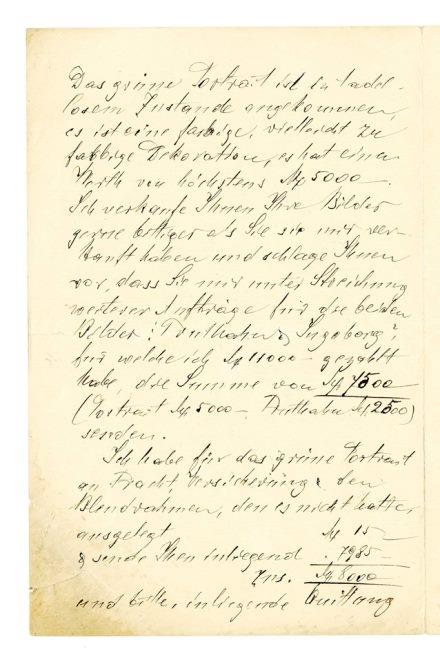 Das grüne Portrait ist in tadel-
losem Zustande angekommen,
es ist eine farbige, vielleicht zu
farbige Dekoration, es hat einen
Werth von höchstens M 5000 -
Ich verkaufe Ihnen Ihre Bilder
gerne billiger als Sie sie mir ver-
kauft haben und schlage Ihnen
vor, dass Sie mir unter Streichung
weiterer Aufträge für die beiden
Bilder: "Truthahn & Ingeborg",
für welche ich M 11000 - gezahlt
habe, die Summe von M 7500
(Portrait M 5000 - Truthahn M 2500)
senden.
Ich habe für das grüne Portrait
an Fracht, Versicherung & den
Blendrahmen, den es nicht hatte,
ausgelegt M 15 -
& sende Ihnen inliegend . 7985 -
Zus. M 8000
und bitte, inliegende Quittung